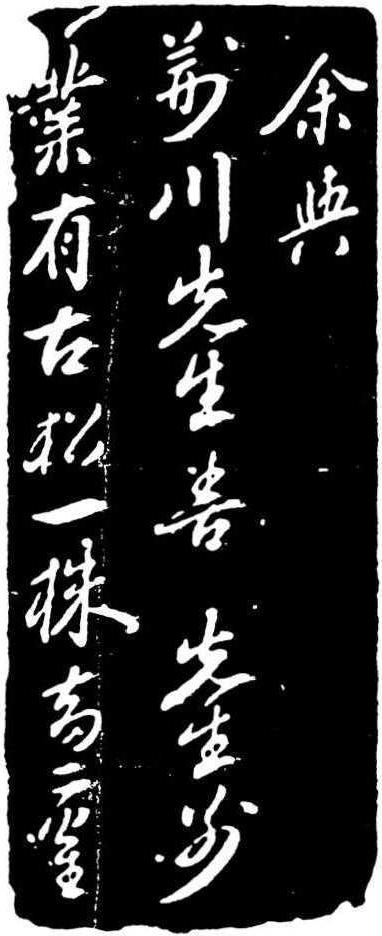 余與
荊川先生善 先生別
業有古松一株高二